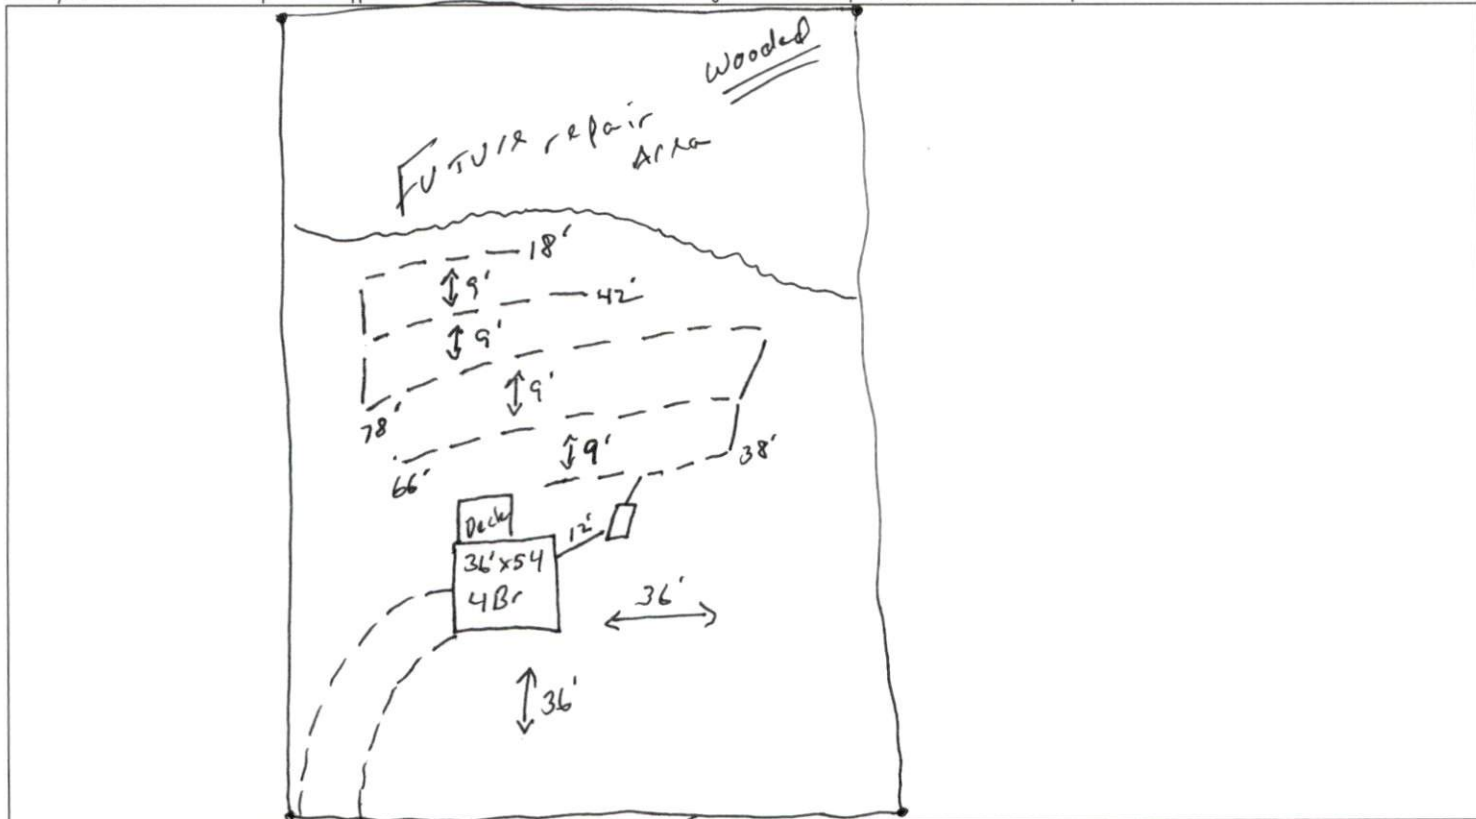 Wooded
Future repair
Area
18'
9'
42'
9'
9'
78'
9'
38'
66'
Deck
12'
36'x54
4Br
36'
36'